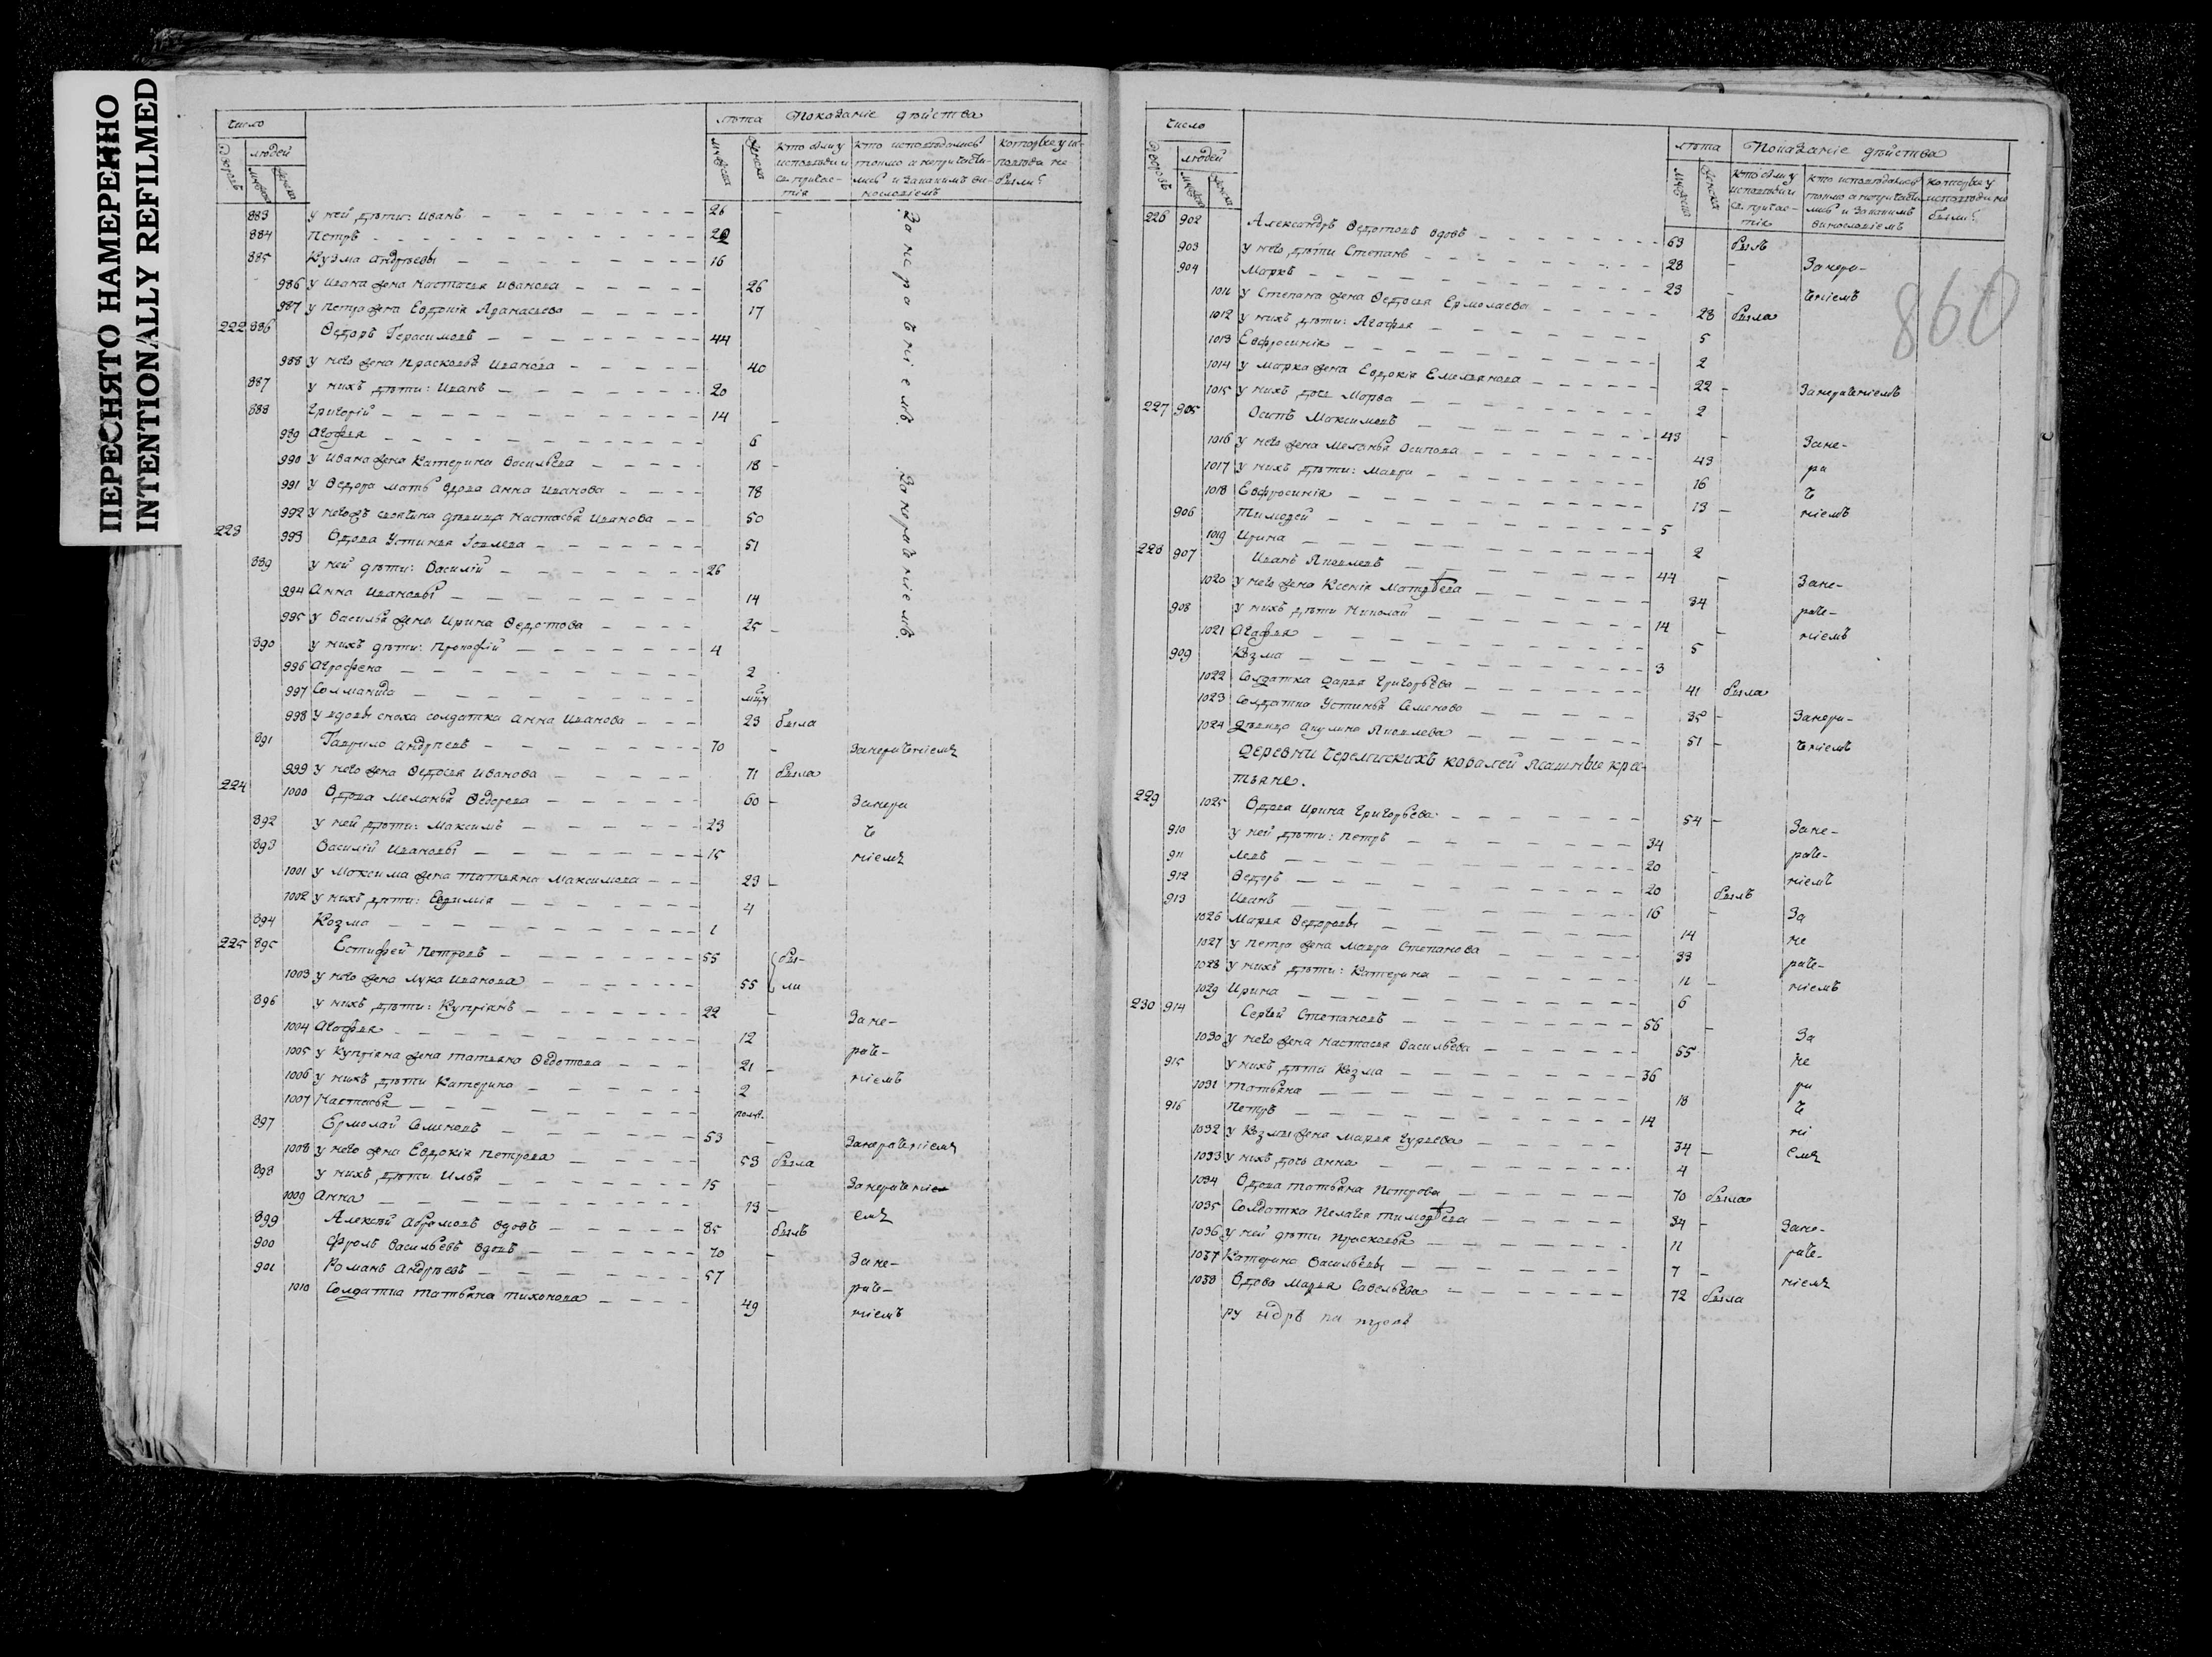 ПЕРЕСНЯТО НАМЕРЕННО
INTENTIONALLY REFILMED
число лѣта Показаніе дѣйства
дворовъ людей мужеска женска мужеска женска кто были у исповѣди и св. причастія кто исповѣдались токмо а непричастились и за какимъ винословіемъ которые у исповѣди не были
883 у ней дѣти: Иванъ 26
884 Петръ 20
885 Кузма Андреевы 16
986 у Ивана жена Настасья Иванова 26
987 у Петра жена Евдокія Афанасьева 17
222 886 Ѳедоръ Герасимовъ 44
988 у него жена Прасковья Иванова 40
887 у нихъ дѣти: Иванъ 20
888 Григорій 14
989 Агафья 6
990 у Ивана жена Катерина Васильева 18
991 у Ѳедора мать вдова Анна Иванова 78
992 у негожъ своячина дѣвица Настасья Иванова 50
Занераченіемъ. Занераченіемъ.
223 993 Вдова Устинья 51
889 у ней дѣти: Василій 26
994 Анна Ивановы 14
995 у Василья жена Ирина Ѳедотова 25
890 у нихъ дѣти: Прокофій 4
996 Агрофена 2
997 Соломанида 2 мцъ
998 у вдовы сноха солдатка Анна Иванова 23 была
891 Гаврило Андреевъ 70 занераченіемъ
999 у него жена Ѳедосья Иванова 71 была
224 1000 Вдова Меланья Ѳедорова 60 Занера
892 у ней дѣти: Максимъ 23 че
893 Василій Ивановы 15 ніемъ
1001 у Максима жена Татьяна Максимова 23
1002 у нихъ дѣти: Евфимія 4
894 Козма 1
225 895 Естифей Петровъ 55 бы-
1003 у него жена Лукія Иванова 55 ли
896 у нихъ дѣти: Купріянъ 22 Зане-
1004 Агафья 12
1005 у Купріяна жена Татьяна Ѳедотова 21 раче-
1006 у нихъ дѣти Катерина 2 ніемъ
1007 Настасья полг.
897 Ермолай Семеновъ 53 Занераченіемъ
1008 у него жена Евдокія Петрова 53 была
898 у нихъ дѣти Илья 15 Занерачение
1009 Анна 13 емъ
899 Алексѣй Абрамовъ вдовъ 85 былъ
900 Фролъ Васильевъ вдовъ 70 Зане-
901 Романъ Андреевъ 57 раче-
1010 Солдатка Татьяна Тихонова 49 ніемъ
число лѣта Показаніе дѣйства
дворовъ людей мужеска женска мужеска женска кто были у исповѣди и св. причастія кто исповѣдались токмо а непричастились и за какимъ винословіемъ которые у исповѣди не были
860
226 902 Александръ Ѳедотовъ вдовъ 63 былъ
903 у него дѣти Степанъ 28 Занера-
904 Марко 23 ченіемъ
1011 у Степана жена Ѳедосья Ермолаева 28 была
1012 у нихъ дѣти: Агафья 5
1013 Евфросинія 2
1014 у Марка жена Евдокія Емельянова 22 Занераченіемъ
1015 у нихъ дочь Марфа 2
227 905 Осипъ Максимовъ 43 Зане-
1016 у него жена Меланья Осипова 43 ра
1017 у нихъ дѣти: Мавра 16 че
1018 Евфросинія 13 ніемъ
906 Тимофей 5
1019 Ирина 2
228 907 Иванъ Яковлевъ 44 Зане-
1020 у него жена Ксенія Матвѣева 34 раче-
908 у нихъ дѣти Николай 14 ніемъ
1021 Агафья 5
909 Козма 3
1022 Солдатка Дарья Григорьева 41 была
1023 Солдатка Устинья Семенова 35 Занера-
1024 Дѣвица Акулина Яковлева 51 ченіемъ
Деревни Черемискихъ Ковалей ясашные крес-
тьяне.
229 1025 Вдова Ирина Григорьева 54 Зане-
910 у ней дѣти: Петръ 34 раче-
911 Левъ 20 ніемъ
912 Ѳедоръ 20 былъ
913 Иванъ 16 За
1026 Марья Ѳедоровы 14 не
1027 у Петра жена Мавра Степанова 33 раче-
1028 у нихъ дѣти: Катерина 11 ніемъ
1029 Ирина 6
230 914 Сергѣй Степановъ 56 За
1030 у него жена Настасья Васильева 55 не
915 у нихъ дѣти Козма 36 ра
1031 Татьяна 18 че
916 Петръ 14 ні
1032 у Козмы жена Марья Гурьева 34 емъ
1033 у нихъ дочь Анна 4
1034 Вдова Татьяна Петрова 70 была
1035 Солдатка Пелагея Тимофѣева 34 Зане-
1036 у ней дѣти Прасковья 11 раче-
1037 Катерина Васильевы 7 ніемъ
1038 Вдова Марья Савельева 72 была